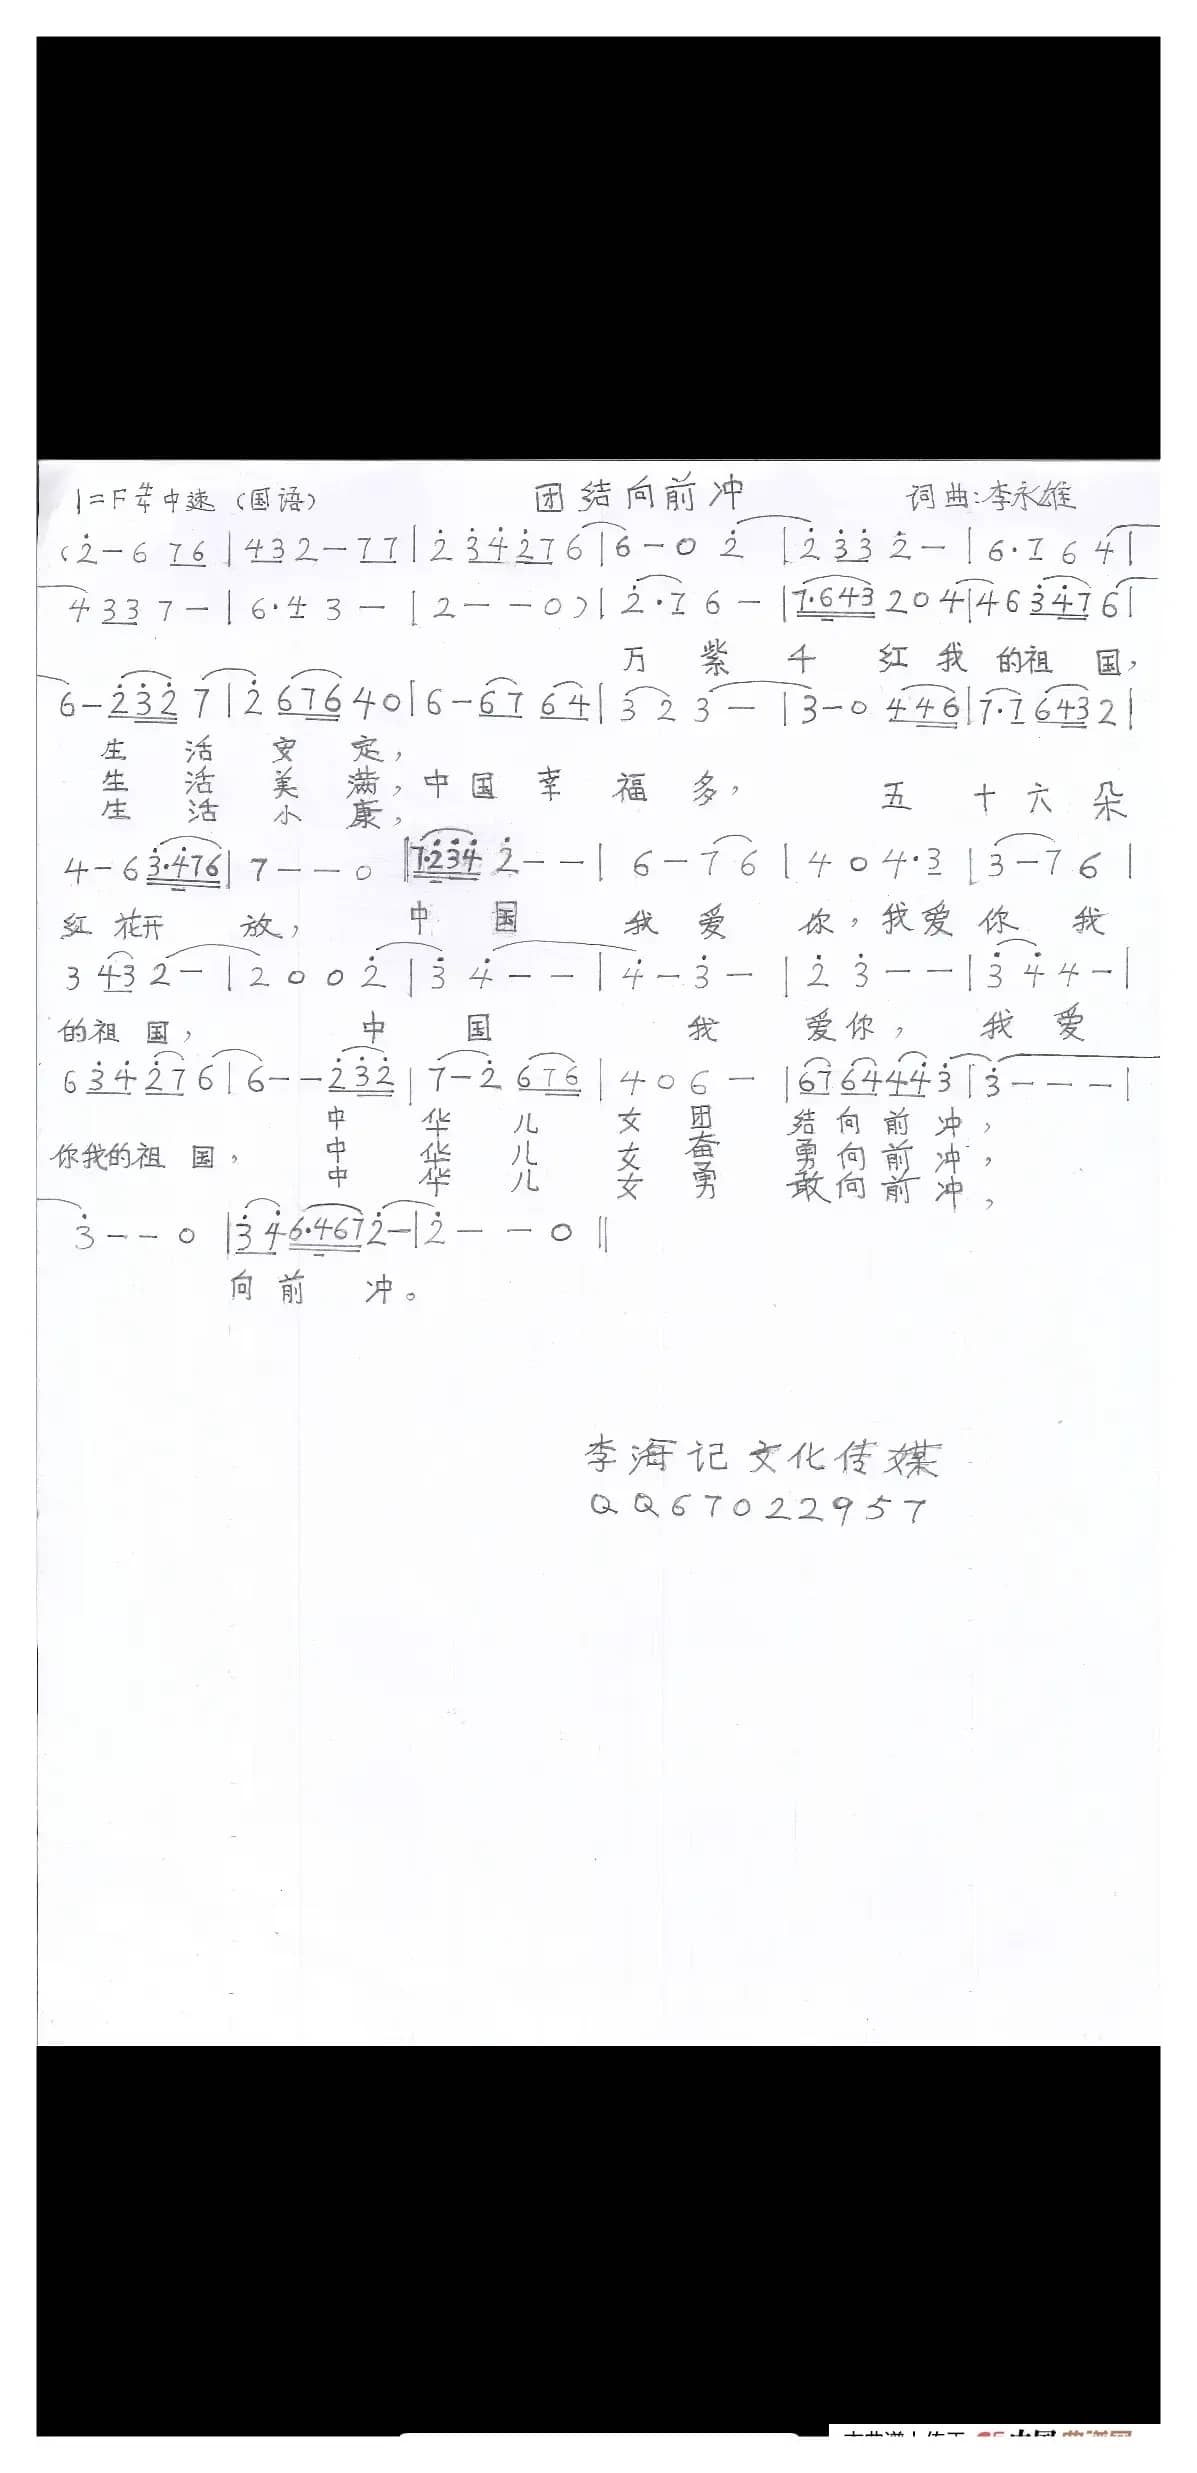 1=F 4/4 中速 (国语) 团结向前冲 词曲:李永雄
(2̇－6 76 | 432－77 | 2̇ 3̇4̇2̇76 | 6－0 2̇ | 2̇ 3̇3̇ 2̇－ | 6·7 6 4 |
4 33 7－ | 6·4 3－ | 2－－0) | 2̇·7 6－ | 7·643 204 | 46 3̇4̇76 |
万 紫 千 红 我 的祖 国，
6－2̇3̇2̇ 7 | 2̇ 676 40 | 6－67 64 | 3 2 3－ | 3－0 446 | 7·7 643 2 |
生 活 安 定，
生 活 美 满，中 国 幸 福 多， 五 十 六 朵
生 活 小 康，
4－6 3̇·4̇76 | 7－－0 ‖ 7·2̇3̇4̇ 2̇－－ | 6－7 6 | 4 0 4·3 | 3－7 6 |
红 花开 放， 中 国 我 爱 你，我爱 你 我
3 43 2－ | 2 0 0 2̇ | 3̇ 4̇－－ | 4̇－3̇－ | 2̇ 3̇－－ | 3̇ 4̇ 4－ |
的祖 国， 中 国 我 爱你， 我 爱
6 3̇4̇ 2̇7 6 | 6－－2̇3̇2̇ | 7－2̇ 676 | 4 0 6－ | 67 64 44̇ 3̇ | 3̇－－－ |
中 华 儿 女 团 结 向 前 冲，
你我的祖 国， 中 华 儿 女 奋 勇 向 前 冲，
中 华 儿 女 勇 敢 向 前 冲，
3̇－－0 | 3̇4̇ 6·467 2̇－ | 2̇－－0 ‖
向 前 冲。
李海记文化传媒
QQ67022957